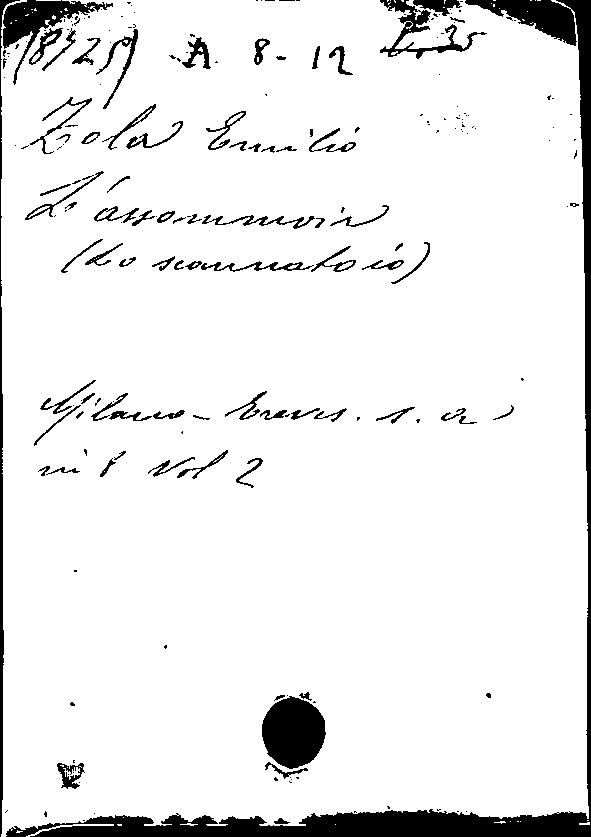 18725) A 8-12
Zola Emilio
L'assommoir
(Lo scannatoio)
Milano - Treves. s. a
in 8 Vol 2